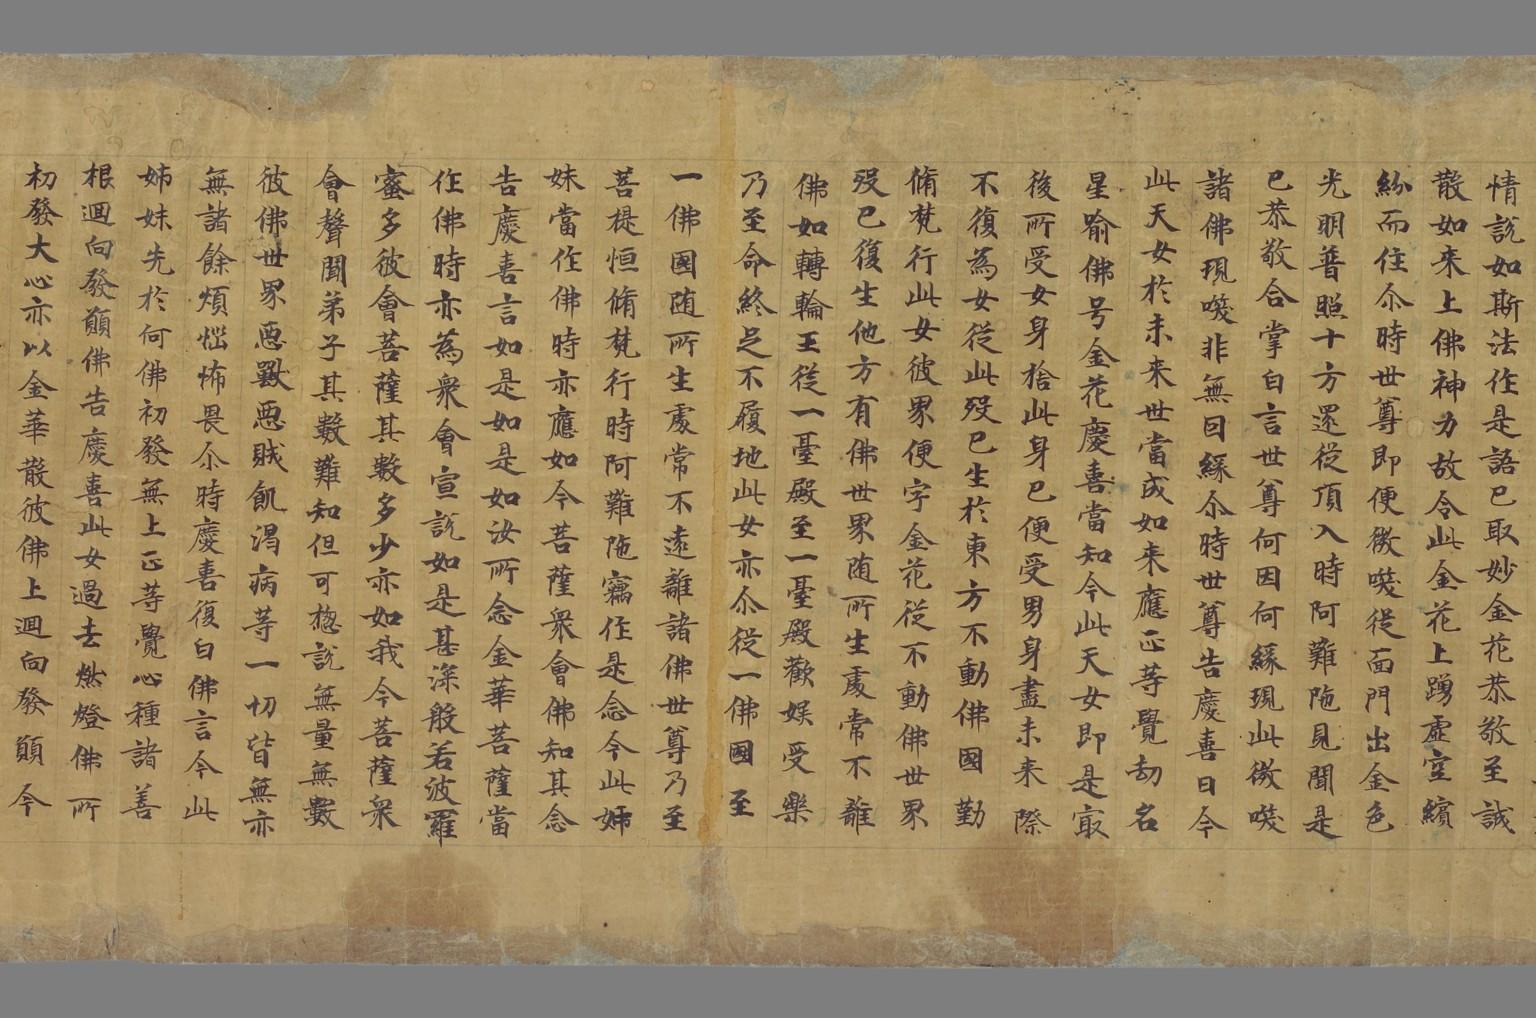 情說如斯法作是語已取妙金花恭敬至誠
散如来上佛神力故令此金花上踴虛空繽
紛而住尒時世尊即便微咲從面門出金色
光明普照十方還從頂入時阿難陁見聞是
已恭敬合掌白言世尊何因何緣現此微咲
諸佛現咲非無因緣尒時世尊告慶喜曰今
此天女於未来世當成如来應正等覺劫名
星喻佛号金花慶喜當知今此天女即是㝡
後所受女身捨此身已便受男身盡未来際
不復為女從此歿已生於東方不動佛國勤
脩梵行此女彼界便字金花從不動佛世界
歿已復生他方有佛世界随所生處常不離
佛如轉輪王從一臺殿至一臺殿歡娱受樂
乃至命終足不履地此女亦尒從一佛國至
一佛國随所生處常不遠離諸佛世尊乃至
菩提恒脩梵行時阿難陁竊作是念今此姉
妹當作佛時亦應如今菩薩衆會佛知其念
告慶喜言如是如是如汝所念金華菩薩當
作佛時亦為衆會宣說如是甚深般若波羅
蜜多彼會菩薩其數多少亦如我今菩薩衆
會聲聞弟子其數難知但可揔說無量無數
彼佛世界惡獸惡賊飢渴病等一切皆無亦
無諸餘煩惱怖畏尒時慶喜復白佛言今此
姉妹先於何佛初發無上正等覺心種諸善
根迴向發願佛告慶喜此女過去燃燈佛所
初發大心亦以金華散彼佛上迴向發願今